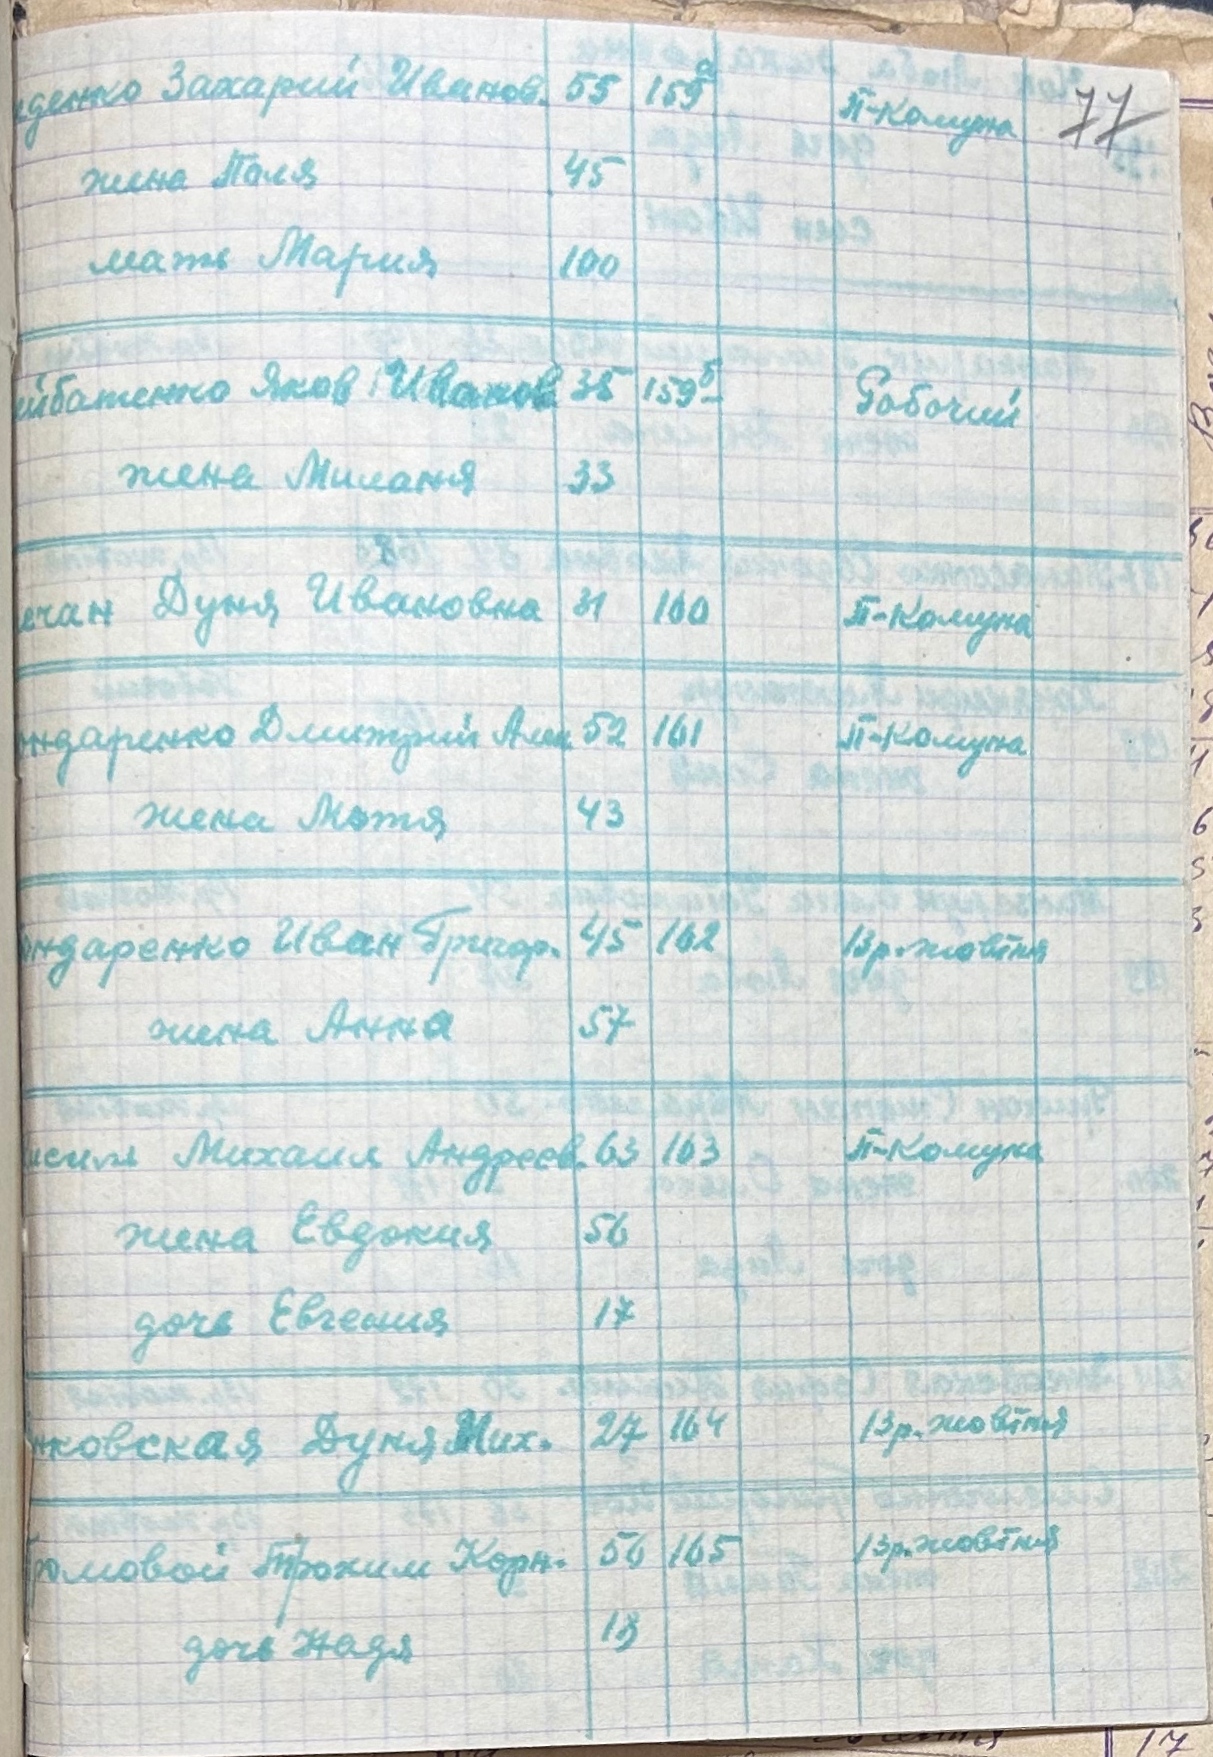 77
денко Захарий Иванов. 55 159а П-Комуна
жена Поля 45
мать Мария 100
йбатенко Яков Иванов 38 159б Робочий
жена Миланя 33
ечан Дуня Ивановна 31 160 П-Комуна
ндаренко Дмитрий Алек 52 161 П-Комуна
жена Мотя 43
ндаренко Иван Григор. 45 162 13р. жовтня
жена Анна 57
Михаил Андреев. 63 163 П-Комуна
жена Евдокия 56
дочь Евгения 17
нковская Дуня Мих. 27 164 13р. жовтня
ромовой Трохим Корн. 56 165 13р. жовтня
дочь Надя 18